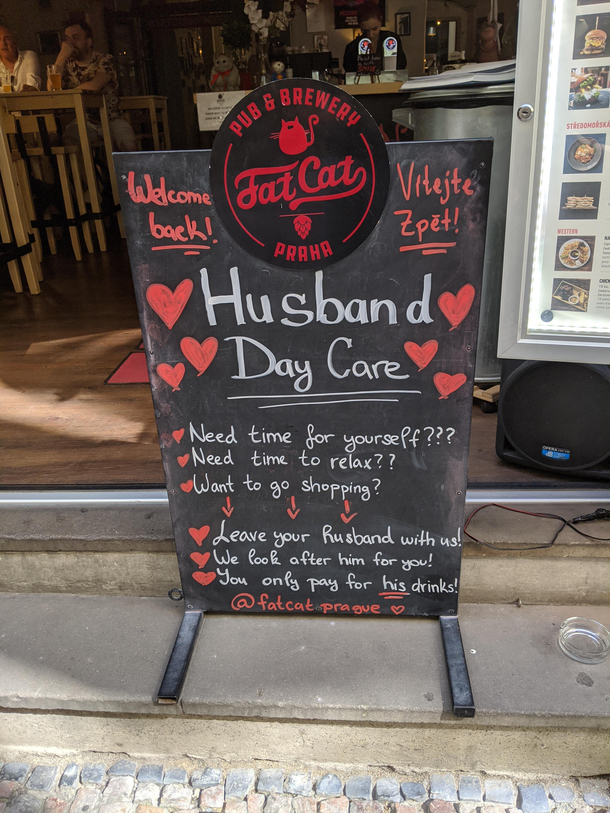 PUB & BREWERY
Fat Cat
PRAHA
Welcome
back!
Vítejte
Zpět!
Husband
Day Care
Need time for yourself???
Need time to relax??
Want to go shopping?
Leave your husband with us!
We look after him for you!
You only pay for his drinks!
@fatcat.prague
STŘEDOMOŘSKÁ
WESTERN